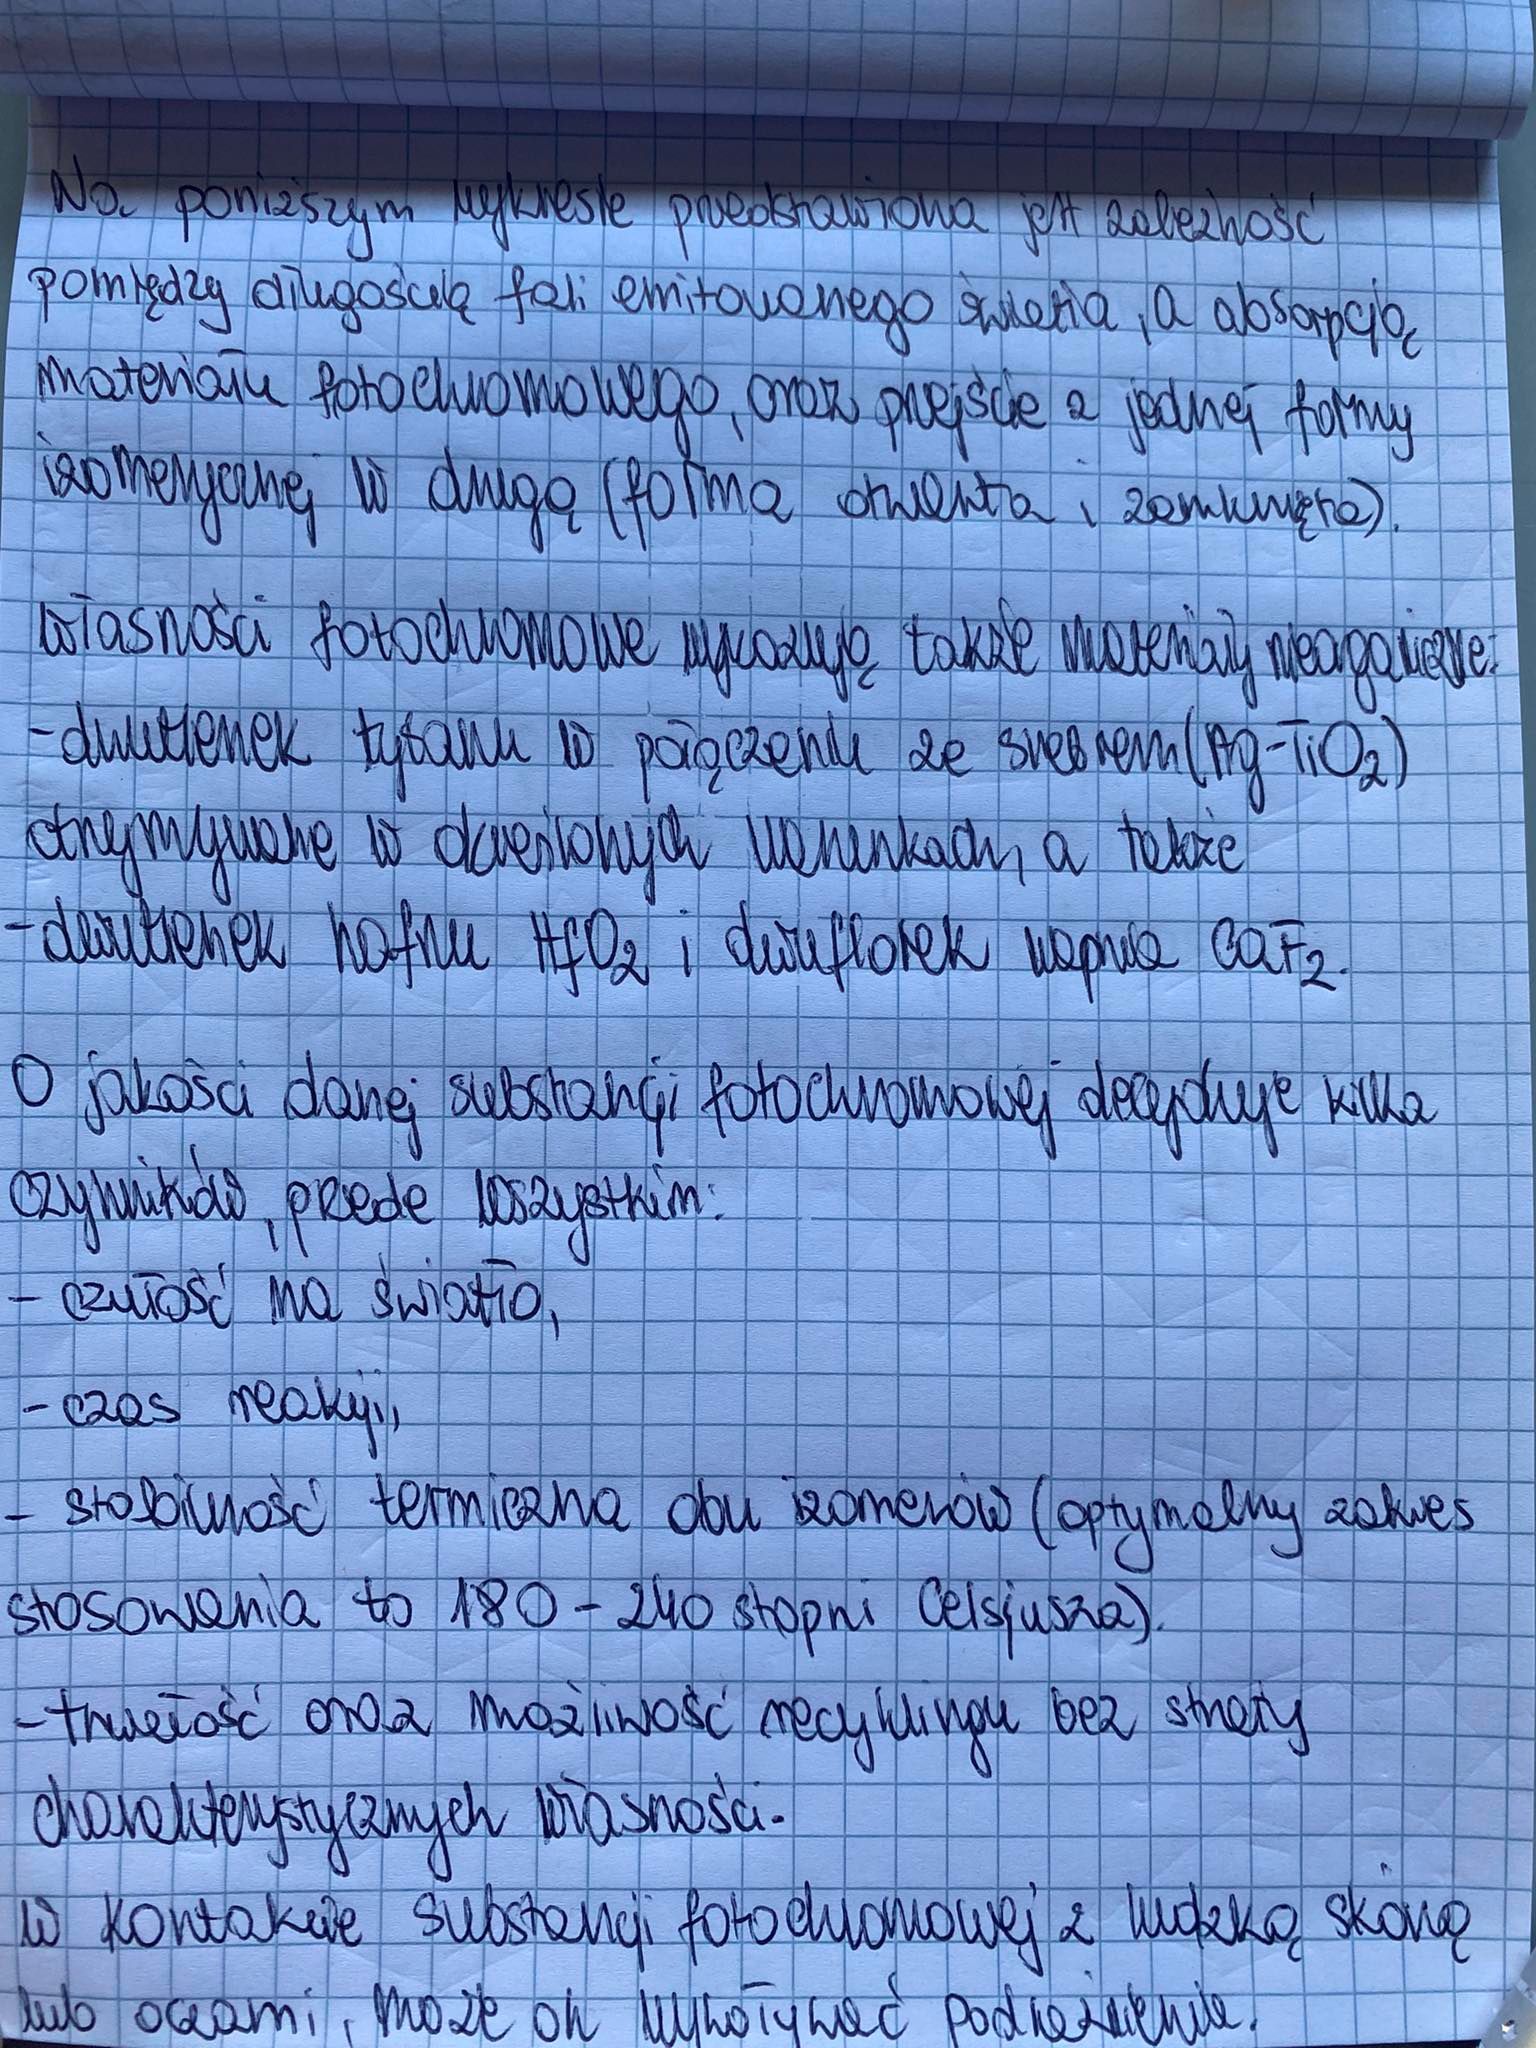 Na poniższym wykresie przedstawiona jest zależność
pomiędzy długością fali emitowanego światła, a absorpcją
materiału fotochromowego, oraz przejście z jednej formy
izomerycznej w drugą (forma otwarta i zamknięta).
Własności fotochromowe wykazują także materiały nieorganiczne:
- dwutlenek tytanu w połączeniu ze srebrem (Ag-TiO2)
otrzymywane w określonych warunkach, a także
- dwutlenek hafnu HfO2 i dwufluorek wapnia CaF2.
O jakości danej substancji fotochromowej decyduje kilka
czynników, przede wszystkim:
- czułość na światło,
- czas reakcji,
- stabilność termiczna obu izomerów (optymalny zakres
stosowania to 180 - 240 stopni Celsjusza).
- trwałość oraz możliwość recyklingu bez straty
charakterystycznych własności.
W kontakcie substancji fotochromowej z ludzką skórą
lub oczami, może on wywoływać podrażnienie.